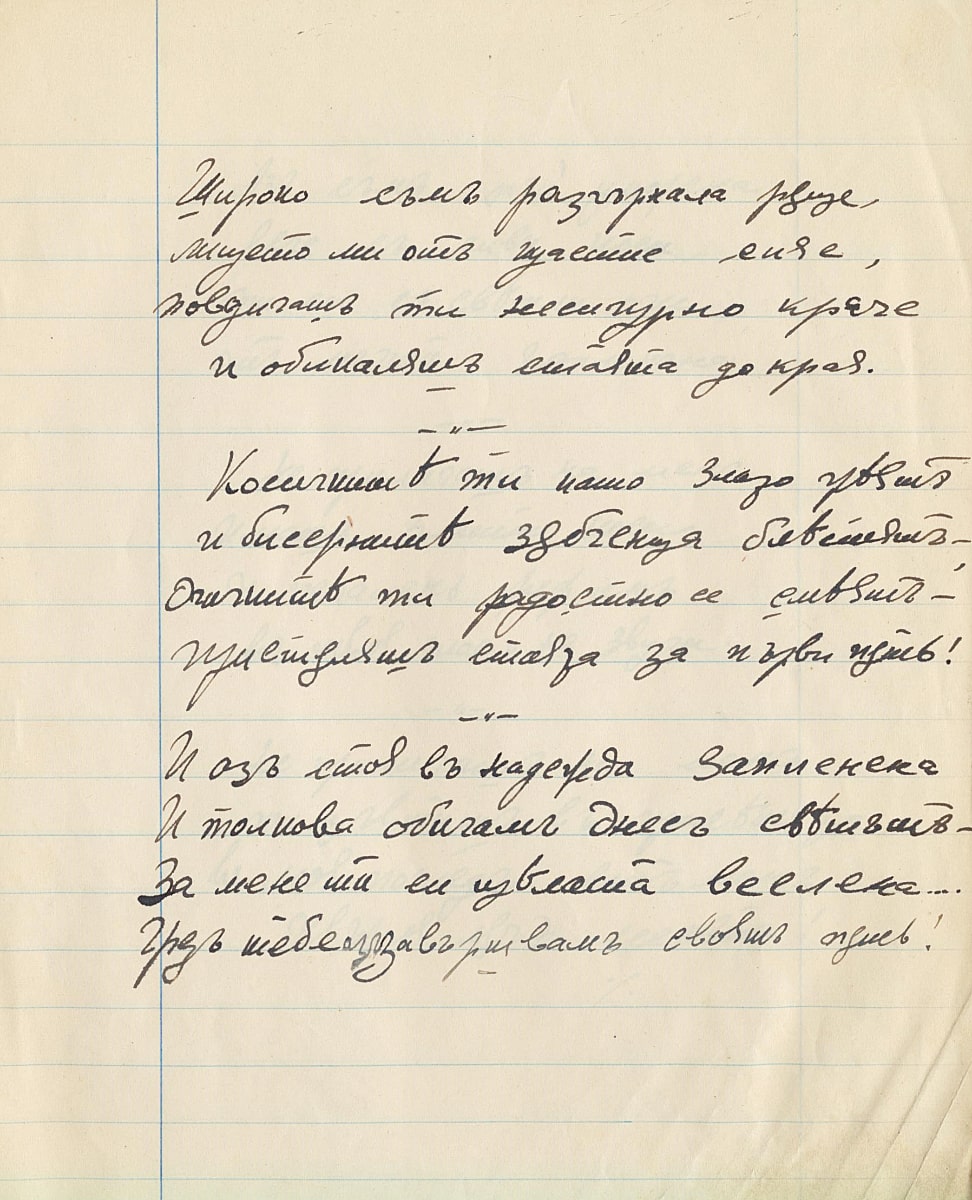 Широко съмъ разтърнала рѫце,
лицето ми отъ щастие сияе,
повдигашъ ти несигурно краче
и обикаляшъ стаята до края.
— „ —
Косичкитѣ ти като злато цвѣтятъ
и бисернитѣ зѫбченца блѣстятъ —
Очичкитѣ ти радостно се смѣятъ —
пристѫпяшъ стаята за първи пѫть!
— „ —
И азъ стоя въ надежда запленена
И толкова обичамъ днесъ свѣтътъ —
За мене ти си цѣлата вселена...
Чрезъ тебе азъ завършвамъ своятъ пѫть!